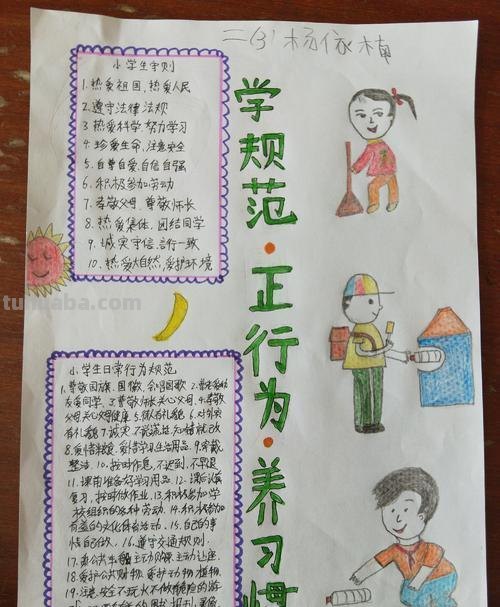 二(3)杨依楠
小学生守则
1.热爱祖国,热爱人民
2.遵守法律法规
3.热爱科学,努力学习
4.珍爱生命,注意安全
5.自尊自爱,自信自强
6.积极参加劳动
7.孝敬父母,尊敬师长
8.热爱集体,团结同学
9.诚实守信,言行一致
10.热爱大自然,爱护环境
学规范·正行为·养习惯
tuhuaba.com
小学生日常行为规范
1.尊敬国旗、国徽,会唱国歌 2.
友爱同学,3.尊敬师长关心父母,4.孝敬
父母关心父母健康 5.做有礼貌 6.对别人
有礼貌 7.诚实不说谎话,知错就改
8.爱惜粮食,爱惜学习生活用品.9.穿戴
整洁.10.按时作息,不迟到,不早退
11.课前准备好学习用品.12.课后认真
复习,按时做作业,13.积极参加学
校组织的各种劳动.14.积极参加
有益的文化体育活动.15.自己的事
情自己做.16.遵守交通规则.
17.乘公共车船主动购票,主动让座.
18.爱护公共财物,爱护动物、植物.
19.注意安全不玩火不做危险的游